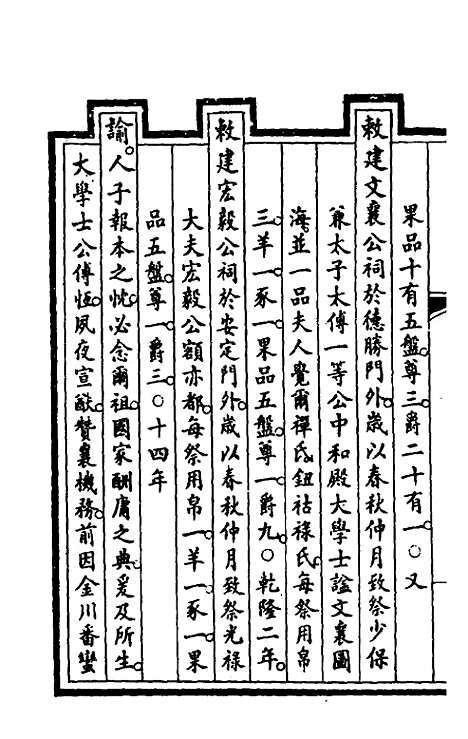 果品十有五盤。尊三。爵二十有一。○又
敕建文襄公祠於德勝門外。歲以春秋仲月致祭少保
兼太子太傅一等公中和殿大學士諡文襄圖
海。並一品夫人覺爾禪氏。鈕祜祿氏。每祭用帛
三。羊一。豕一。果品五盤。尊一。爵九。○乾隆二年。
敕建宏毅公祠於安定門外。歲以春秋仲月致祭光祿
大夫宏毅公額亦都。每祭用帛一。羊一。豕一。果
品五盤。尊一。爵三。○十四年
諭。人子報本之忱。必念爾祖。國家酬庸之典。爰及所生。
大學士公傅恆。夙夜宣猷。贊襄機務。前因金川番蠻